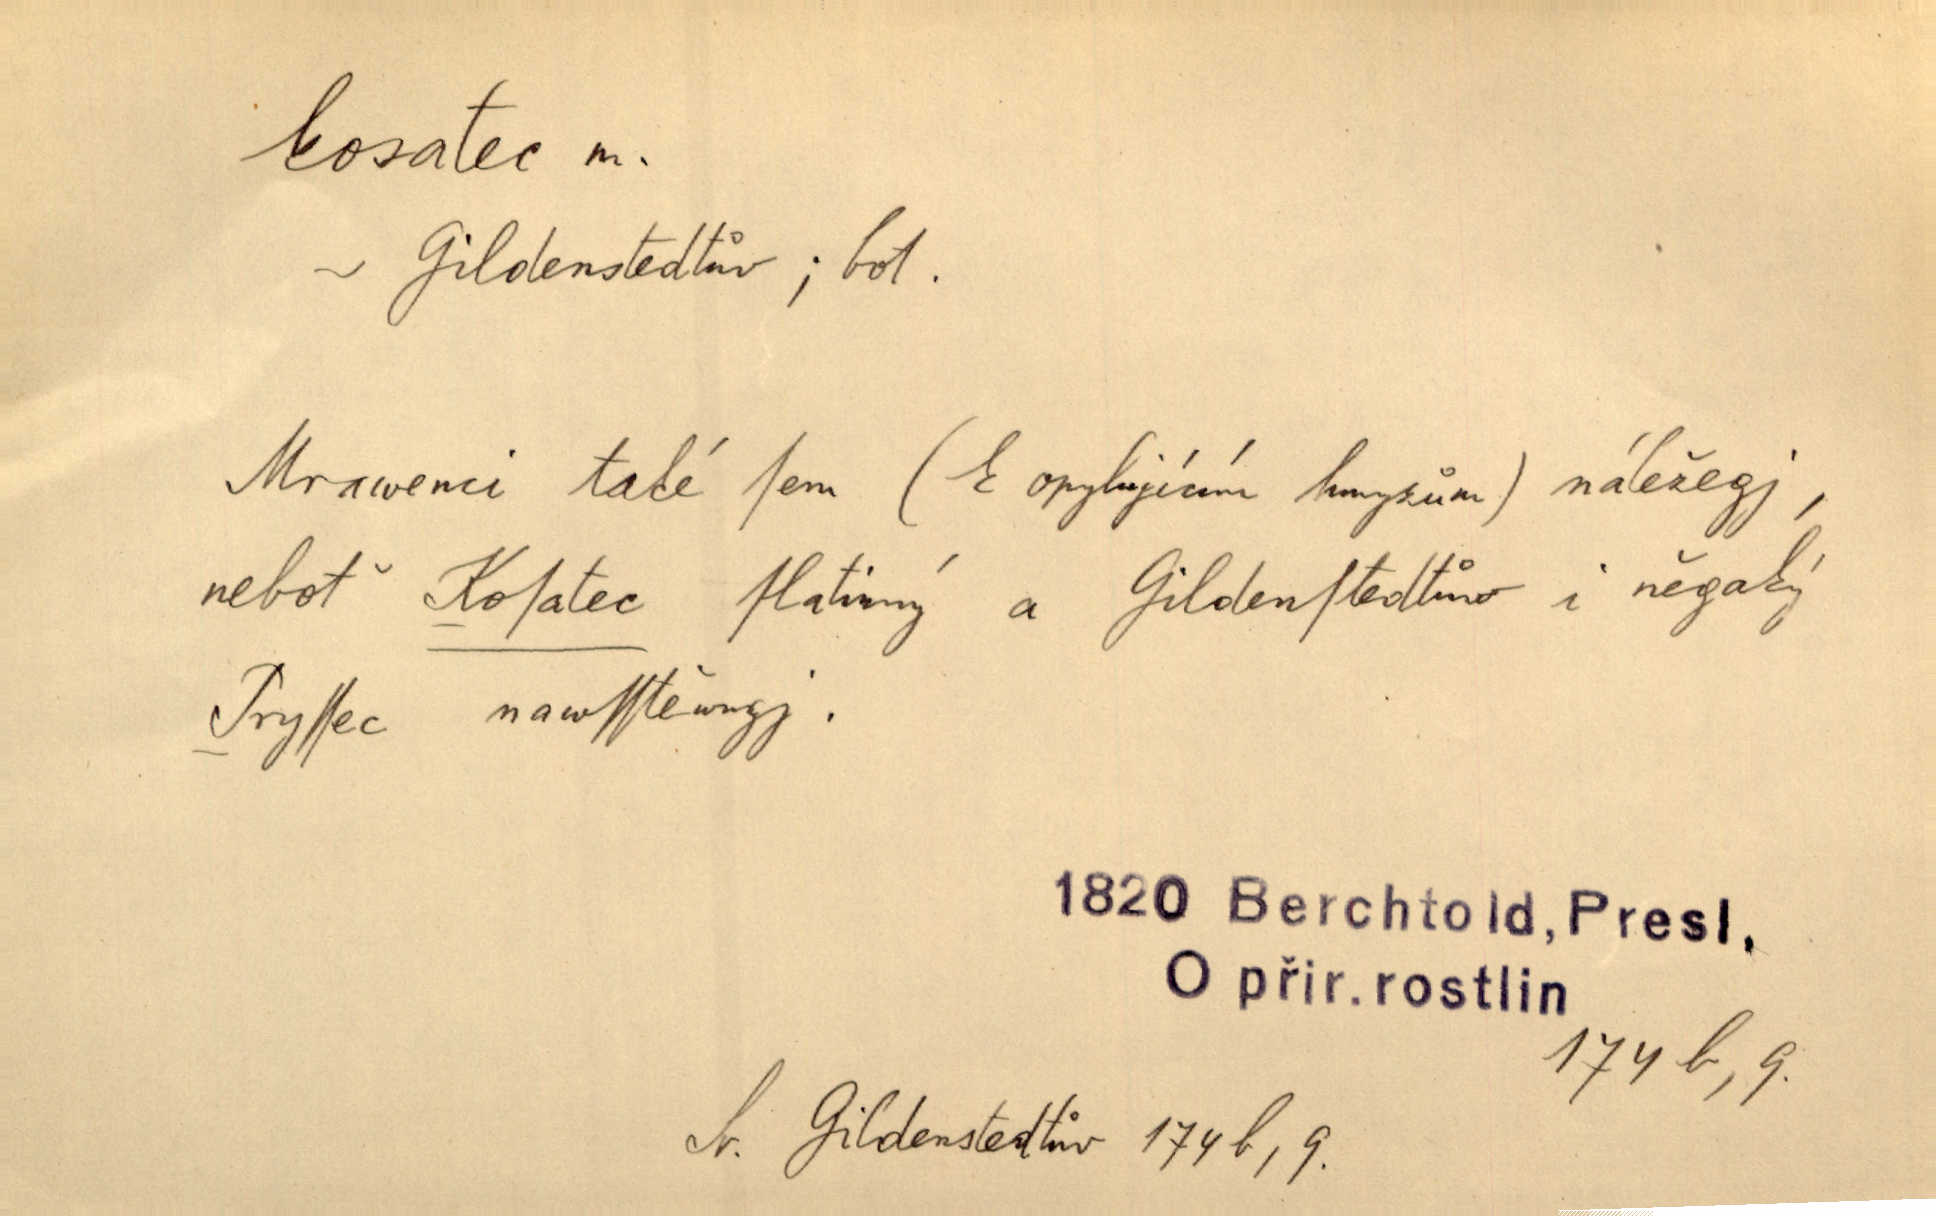 kosatec m.
~ Gildenstedtův ; bot.
Mrawenci také ſem (k opylujícím hmyzům) náležegj,
neboť Koſatec ſlatinný a Gildenſtedtůw i něgaký
Pryſſec nawſſtěwugj.
1820 Berchtold, Presl,
O přir. rostlin
174 b, 9.
Sr. Gildenstedtův 174 b, 9.